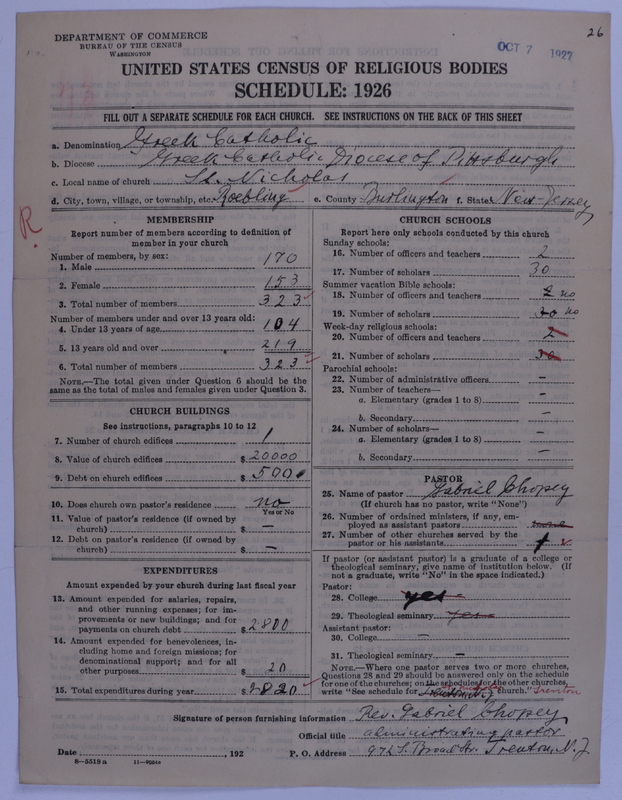 26
DEPARTMENT OF COMMERCE
BUREAU OF THE CENSUS
WASHINGTON
OCT 7 1927
UNITED STATES CENSUS OF RELIGIOUS BODIES
SCHEDULE: 1926
FILL OUT A SEPARATE SCHEDULE FOR EACH CHURCH. SEE INSTRUCTIONS ON THE BACK OF THIS SHEET
a. Denomination Greek Catholic
b. Diocese Greek Catholic Diocese of Pittsburgh
c. Local name of church St. Nicholas
d. City, town, village, or township, etc. Roebling e. County Burlington f. State New-Jersey
R
MEMBERSHIP
Report number of members according to definition of
member in your church
Number of members, by sex:
1. Male 170
2. Female 153
3. Total number of members 323
Number of members under and over 13 years old:
4. Under 13 years of age 104
5. 13 years old and over 219
6. Total number of members 323
NOTE.—The total given under Question 6 should be the
same as the total of males and females given under Question 3.
CHURCH BUILDINGS
See instructions, paragraphs 10 to 12
7. Number of church edifices 1
8. Value of church edifices $ 20000
9. Debt on church edifices $ 500
10. Does church own pastor's residence no
Yes or No
11. Value of pastor's residence (if owned by
church) $ —
12. Debt on pastor's residence (if owned by
church) $ —
EXPENDITURES
Amount expended by your church during last fiscal year
13. Amount expended for salaries, repairs,
and other running expenses; for im-
provements or new buildings; and for
payments on church debt $ 2800
14. Amount expended for benevolences, in-
cluding home and foreign missions; for
denominational support; and for all
other purposes $ 20
15. Total expenditures during year $ 2820
CHURCH SCHOOLS
Report here only schools conducted by this church
Sunday schools:
16. Number of officers and teachers 2
17. Number of scholars 30
Summer vacation Bible schools:
18. Number of officers and teachers 2 no
19. Number of scholars 30 no
Week-day religious schools:
20. Number of officers and teachers 2
21. Number of scholars 30
Parochial schools:
22. Number of administrative officers —
23. Number of teachers—
a. Elementary (grades 1 to 8) —
b. Secondary —
24. Number of scholars—
a. Elementary (grades 1 to 8) —
b. Secondary —
PASTOR
25. Name of pastor Gabriel Chopey
(If church has no pastor, write "None")
26. Number of ordained ministers, if any, em-
ployed as assistant pastors none
27. Number of other churches served by the
pastor or his assistants 1
If pastor (or assistant pastor) is a graduate of a college or
theological seminary, give name of institution below. (If
not a graduate, write "No" in the space indicated.)
Pastor:
28. College yes
29. Theological seminary yes
Assistant pastor:
30. College —
31. Theological seminary —
NOTE.—Where one pastor serves two or more churches,
Questions 28 and 29 should be answered only on the schedule
for one of the churches; on the schedules for the other churches,
write "See schedule for Trenton N.J. church." Trenton
Signature of person furnishing information Rev. Gabriel Chopey
Official title administrating pastor
Date , 192 P. O. Address 972 S. Broad Str. Trenton, N. J
8—5518 a